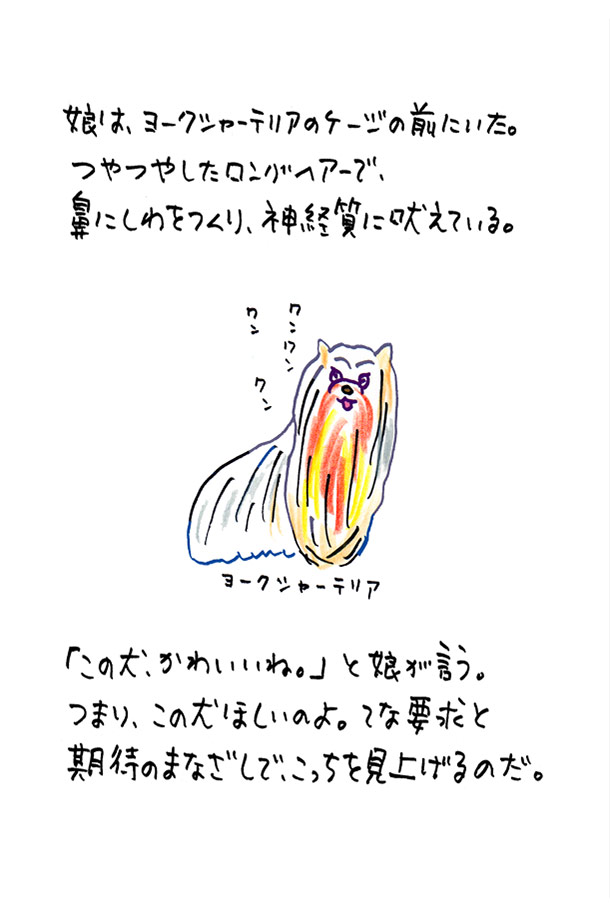 娘は、ヨークシャーテリアのケージの前にいた。
つやつやしたロングヘアーで、
鼻にしわをつくり、神経質に吠えている。
ワンワン
ワン
ワン
ヨークシャーテリア
「この犬、かわいいね。」と娘が言う。
つまり、この犬ほしいのよ。てな要求と
期待のまなざしで、こっちを見上げるのだ。